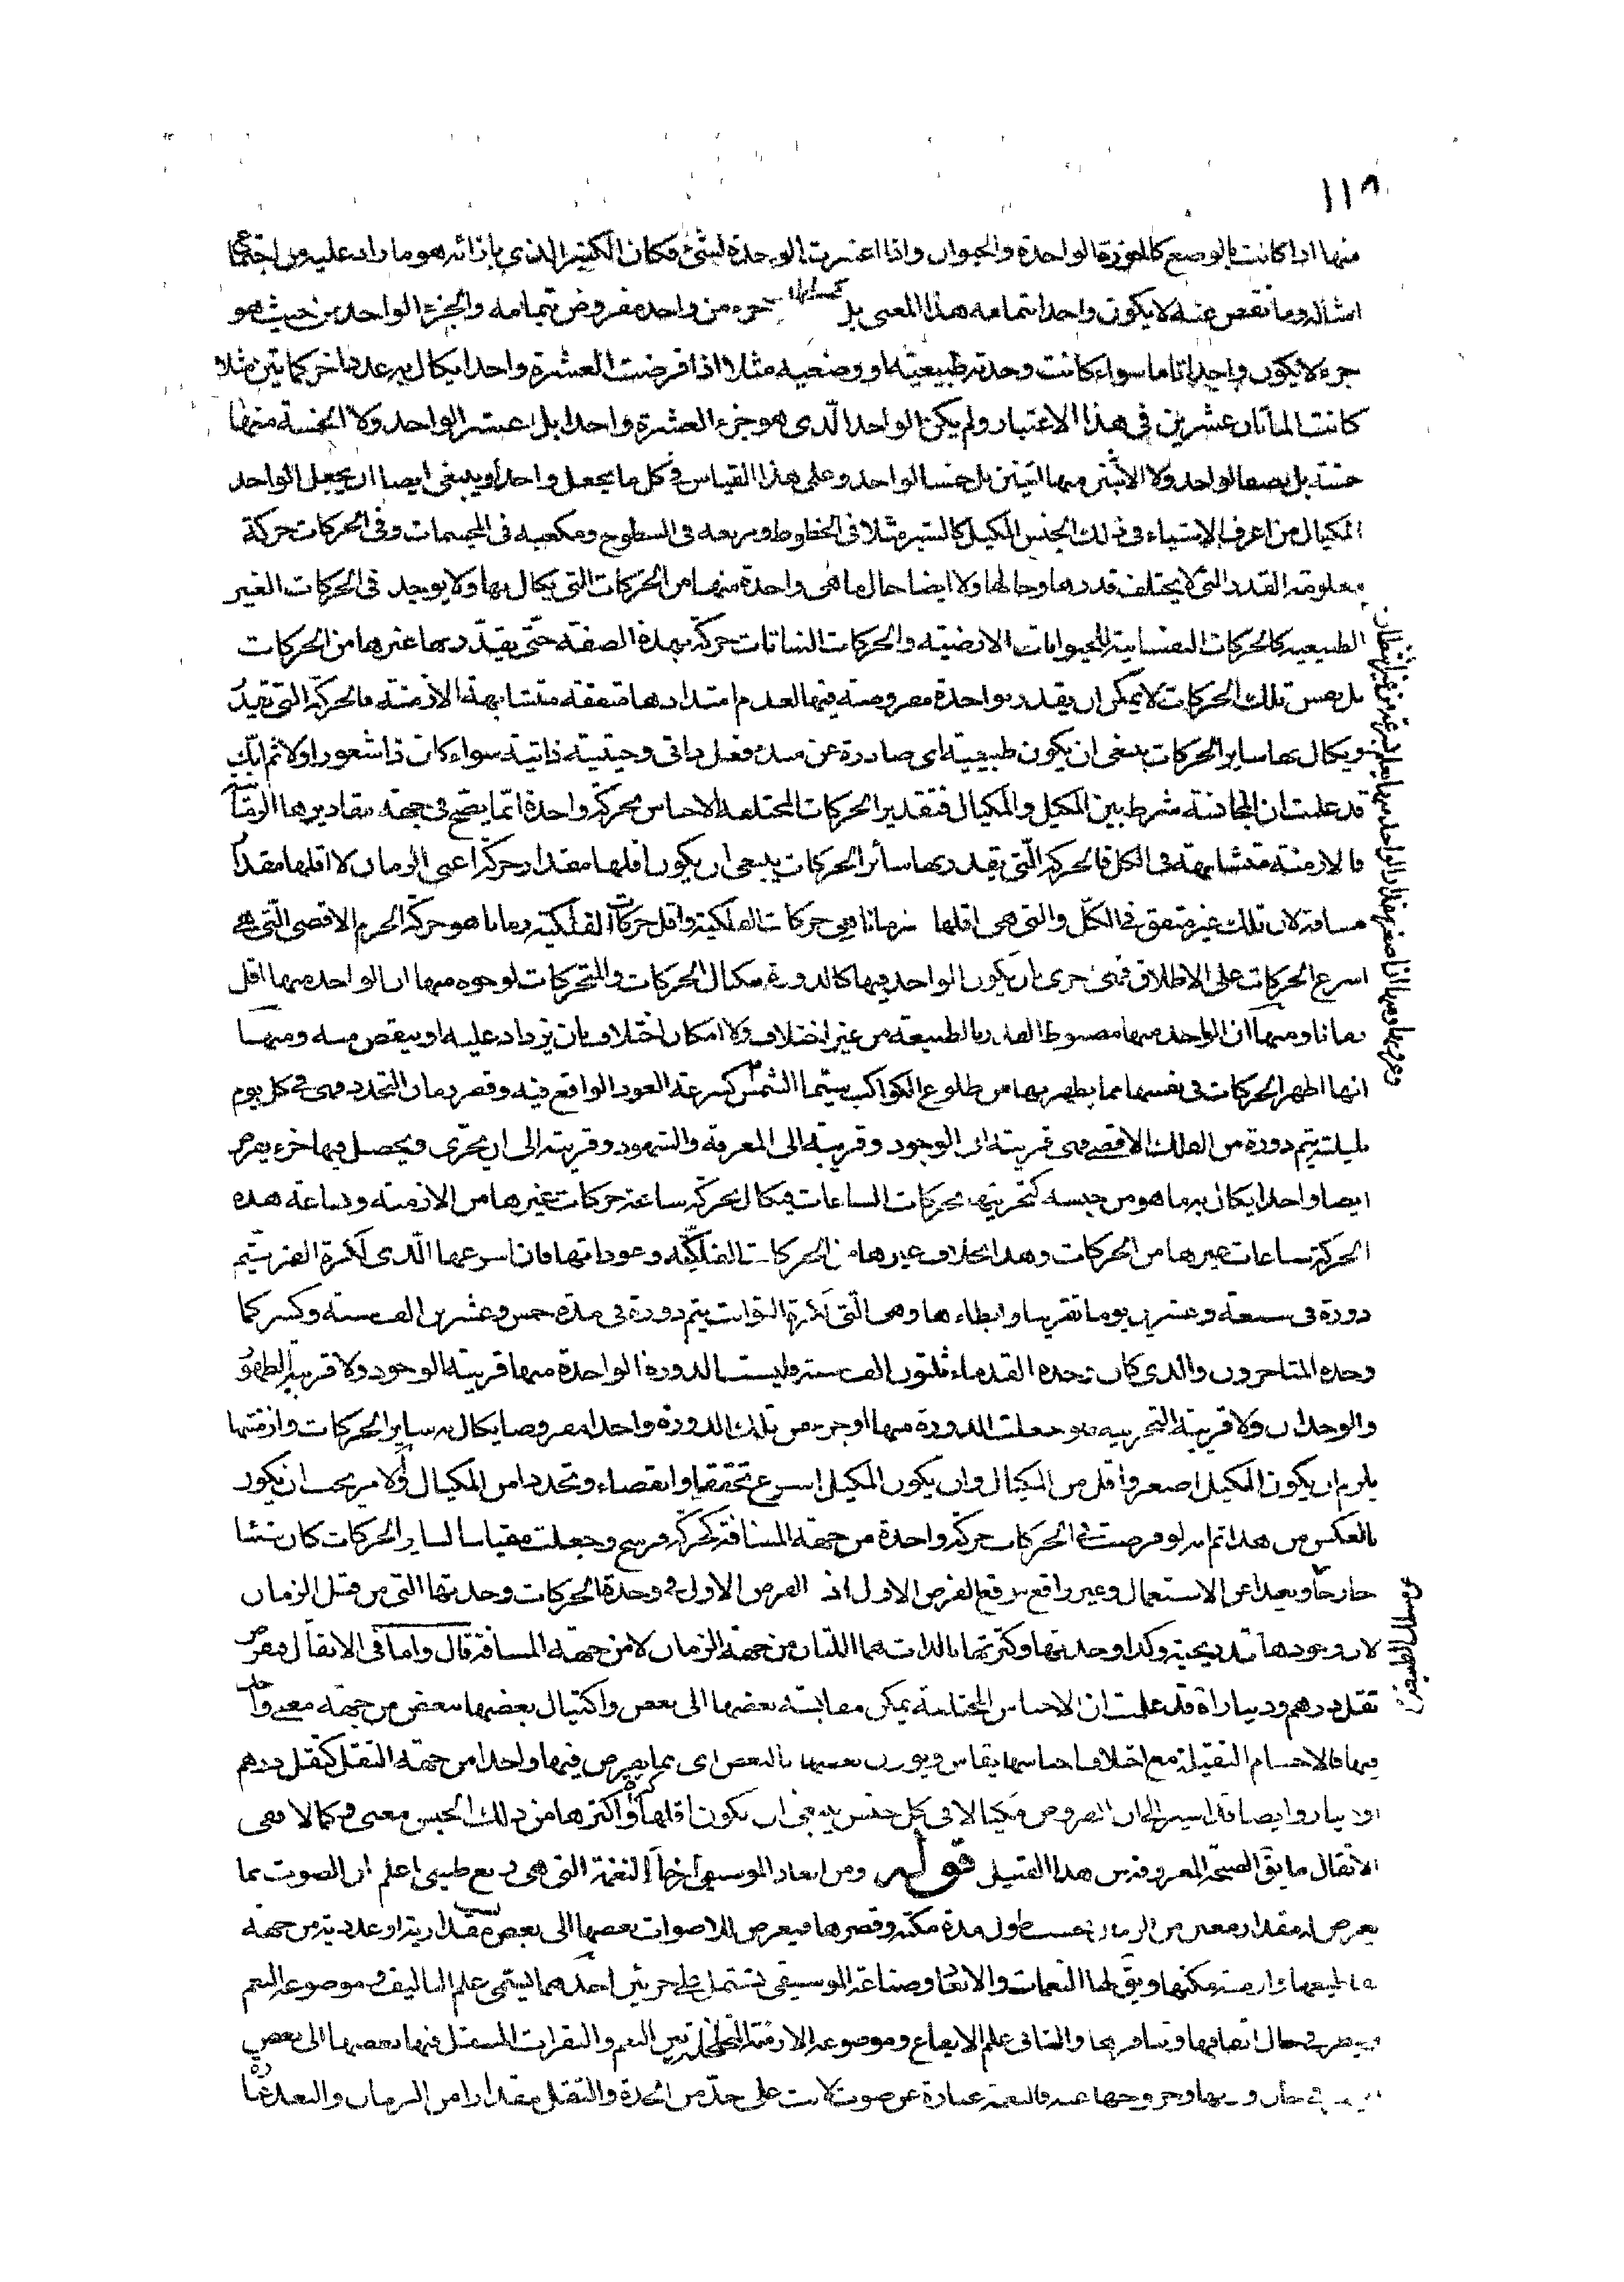 ١١٨
منها اذا كانت بالوضع كالجوزة الواحدة والجوان واذا اعتبرت الوحدة لشئ فكان الكثير الذي بازائه هو ما زاد عليه من اجتماع
امثاله وما نقص عنه لا يكون واحدا بتمامه هذا المعنى بل جزء من واحد مفروض بتمامه والجزء الواحد من حيث هو
جزء لا يكون واحدا تاما سواء كانت وحدته طبيعية او وضعيه مثلا اذا فرضت العشرة واحدا يكال به عدد اخر كمأتين مثلا
كانت المأتان عشرين في هذا الاعتبار ولم يكن الواحد الذى هو جزء العشرة واحدا بل عشر الواحد ولا الخمسة منها
خمسة بل نصف الواحد ولا الاثنين منها اثنين بل خمسا لواحد وعلى هذا القياس في كل ما يجعل واحدا وينبغى ايضا ان يجعل الواحد
المكيال من اعرف الاشياء فى ذلك الجنس المكيل كالشبر مثلا فى الخطوط ومربعه فى السطوح ومكعبه فى المجسمات وفى الحركات حركة
معلومة القدر التى لا يختلف قدرها وحالها ولا ايضا حال ما هى واحدة منها من الحركات التى يكال بها ولا يوجد فى الحركات الغير
الطبيعيه كالحركات النفسانية للحيوانات الارضية والحركات النباتات حركة بهذه الصفة حتى يقدر بها غيرها من الحركات
بل نفس تلك الحركات لا يمكن ان يقدر بواحدة مفروضة فيها لعدم امتدادها متفقة متشابهة الازمنة فالحركة التى تقيد
ويكال بها ساير الحركات ينبغى ان يكون طبيعية اى صادرة عن مبدء فعل ذاتى وحيثية ذاتية سواء كان ذا شعور اولا ثم انك
قد علمت ان المجانسة شرط بين المكيل والمكيال فتقدير الحركات المختلفة الاجناس بحركة واحدة انما يصح فى جهة مقاديرها الزمانية
فالازمنة متشابهة فى الكل فالحركة التى يقدر بها سائر الحركات ينبغى ان يكون اقلها مقدار حركة اعنى الزمان لا اقلها مقدار
مسافة لان تلك غير متفق فى الكل والتى هى اقلها زمانا هى حركات الفلكية واقل حركات الفلكية زمانا هو حركة الجرم الاقصى التى هى
اسرع الحركات على الاطلاق فهى حرى بان يكون الواحد فيها كالدورة مكيال الحركات والمتحركات لوجوه منها ان الواحد منها اقل
زمانا ومنها ان الواحد منها مضبوط القدر بالطبيعة من غير اختلاف ولا امكان اختلاف بان يزداد عليه او ينقص منه ومنها
انها اظهر الحركات فى نفسها مما يظهر بها من طلوع الكواكب سيّما الشمس كسرعة العود الواقع فيه وقصر زمان التجدد فهى فى كل يوم
بليلته يتم دورة من الفلك الاقصى فهى قريبة ان الوجود وقريبة الى المعرفة والشهود وقريبة الى ان يجزى ويحصل فيها جزء يفرض
ايضا واحدا يكال به ما هو من جنسه كتجزيتها بحركات الساعات فيكال بحركة ساعة حركات غيرها من الازمنة وبساعة هذه
الحركة ساعات غيرها من الحركات وهذا بخلاف غيرها من الحركات الفلكيّه وعوداتها فان اسرعها الّذى لكرة القمر يتم
دورة فى سبعة وعشرين يوما تقريبا وابطاءها وهى الّتى لكرة الثوابت يتم دورة فى مدة خمس وعشرين الف سنة وكسر كما
وجده المتاخرون والذى كان وجده القدماء ثلثون الف سنة وليست الدورة الواحدة منها قريبة الوجود ولا قريبة الظهور
والوجدان ولا قريبة التجزيه فلو جعلت الدورة منها او جزء من تلك الدورة واحدا مفروضا يكال به ساير الحركات وازمنتها
يلزم ان يكون المكيل اصغر واقل من المكيال وان يكون المكيل اسرع تحققا وانقضاء وتجددا من المكيال والامر يجب ان يكون
بالعكس من هذا ثم انه لو فرضت فى الحركات حركة واحدة من جهة المسافة كحركة فرسخ وجعلت مقياسا لساير الحركات كان شيئا
خارجا وبعيدا عن الاستعمال وغير واقع موقع الفرض الاول اذ الفرض الاول فى وحدة الحركات وحدتها التى من قبل الزمان
لان وجودها تدريجية وكذا وحدتها وكثرتها بالذات هما اللتان من جهة الزمان لا من جهة المسافة قال واما فى الاثقال فيفرض
ثقل درهم ودينار اه قد علمت ان الاجناس المختلفة يمكن مقايسة بعضها الى بعض واكتيال بعضها ببعض من جهة معنى واحد
فيها فالاجسام الثقيلة مع اختلاف اجناسها يقاس ويوزن بعضها بالبعض اى بما يفرض فيها واحدا من جهة الثقل كثقل درهم
او دينار وايضا قد اشير الى ان المفروض مكيالا فى كل جنس ينبغى ان يكون اقلها واكثرها من ذلك الجنس معنى وكمالا ففى
الاثقال ما يق الصنجة المعروفة من هذا القبيل قوله ومن ابعاد الموسيقى ارخاء النغمة التى هى ربع طنينى اعلم ان الصوت بما
يعرض له مقدار معين من الزمان بحسب طول مدة مكثه وقصرها فيعرض للاصوات بعضها الى بعض نسبة مقدارية او عددية من جهة
تقاطيعها وازمنة مكثها ويق لها النغمات والايقاع وصناعة الموسيقى تشتمل على جزئين احدهما يسمى علم التاليف وموضوعه النغم
وينظر فى حال اتفاقها وتنافرها والثانى علم الايقاع وموضوعه الازمنة المتخللة بين النغم والنقرات المنتقل فيها بعضها الى بعض
فى حال وزنها وخروجها عنه فالنغمة عبارة عن صوت لابث على حدّ من الحدة والثقل مقدارا من الزمان والبعد عما